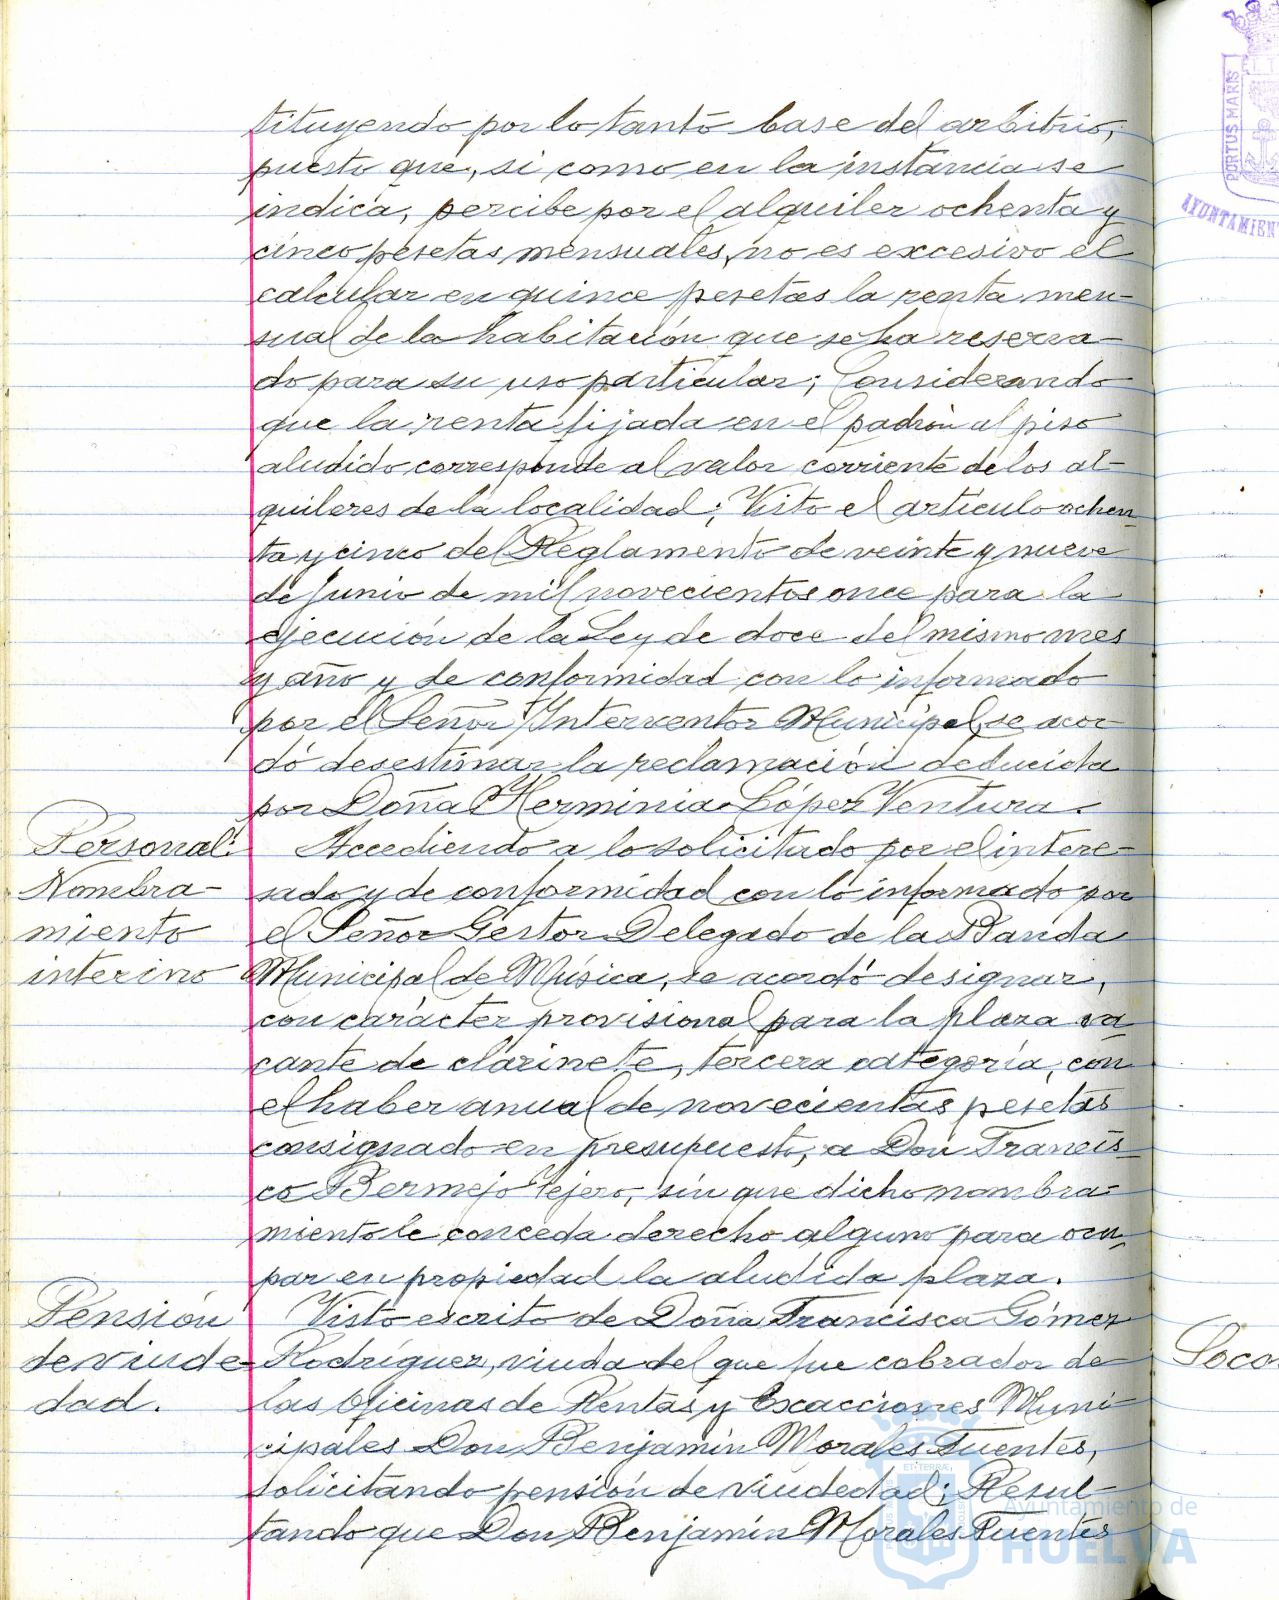 tituyendo por lo tanto base del arbitrio,
puesto que, si como en la instancia se
indica, percibe por el alquiler ochenta y
cinco pesetas mensuales, no es excesivo el
calcular en quince pesetas la renta men-
sual de la habitación que se ha reserva-
do para su uso particular; Considerando
que la renta fijada en el padrón al piso
aludido corresponde al valor corriente de los al-
quileres de la localidad; Visto el artículo ochen-
ta y cinco del Reglamento de veinte y nueve
de Junio de mil novecientos once para la
ejecución de la Ley de doce del mismo mes
y año y de conformidad con lo informado
por el Señor Interventor Municipal, se acor-
dó desestimar la reclamación deducida
por Doña Herminia López Ventura.
Personal:
Nombra-
miento
interino
Accediendo a lo solicitado por el intere-
sado y de conformidad con lo informado por
el Señor Gestor Delegado de la Banda
Municipal de Música, se acordó designar,
con carácter provisional para la plaza va-
cante de clarinete, tercera categoría, con
el haber anual de novecientas pesetas
consignado en presupuesto, a Don Francis-
co Bermejo Tejero, sin que dicho nombra-
miento le conceda derecho alguno para ocu-
par en propiedad la aludida plaza.
Pensión
de viude-
dad.
Visto escrito de Doña Francisca Gómez
Rodríguez, viuda del que fue cobrador de
las Oficinas de Rentas y Exacciones Muni-
cipales Don Benjamín Morales Fuentes,
solicitando pensión de viudedad; Resul-
tando que Don Benjamín Morales Fuentes
PORTUS MARIS
AYUNTAMIEN
Soco
ET TERRAE
Ayuntamiento de
HUELVA